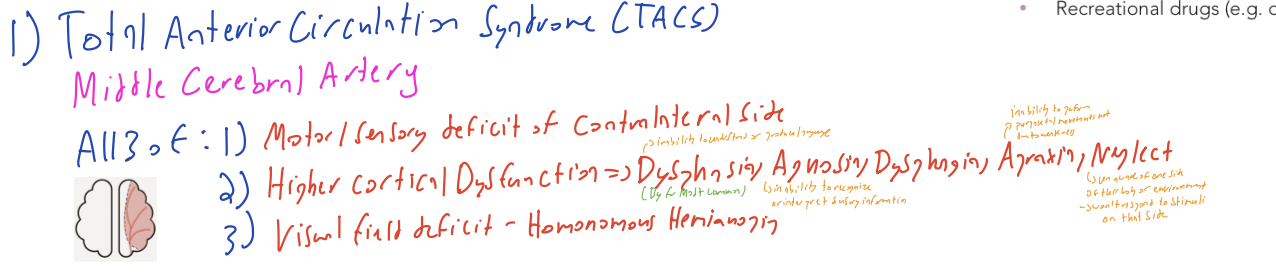 1) Total Anterior Circulation Syndrome (TACS)
Recreational drugs (e.g. c
Middle Cerebral Artery
All 3 of: 1) Motor/sensory deficit of contralateral side
inability to perform
purposeful movements not
due to weakness
inability to understand or produce language
2) Higher cortical Dysfunction => Dysphasia, Agnosia, Dysphagia, Apraxia, Neglect
(By far Most Common)
inability to recognize
or interpret sensory information
unaware of one side
of their body or environment
- swon't respond to stimuli
on that side
3) Visual field deficit - Homonomous Hemianopia